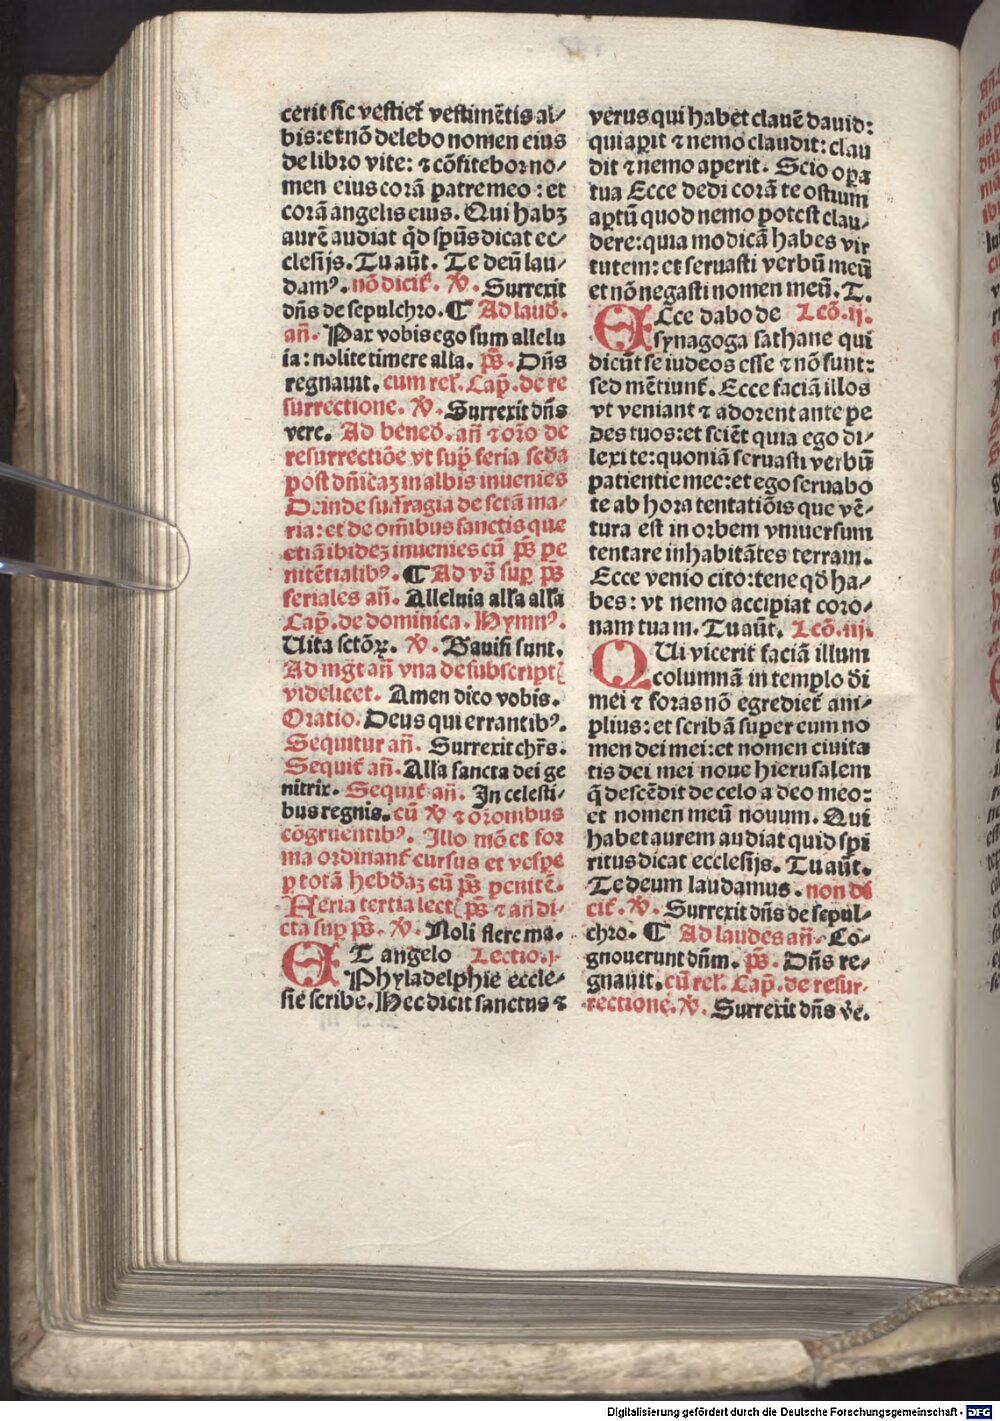 cerit sic vestiet᷑ vestimētis al⸗
bis: et nō delebo nomen eius
de libro vite: ⁊ cōfitebor no⸗
men eius corā patre meo: et
corā angelis eius. Qui habꝫ
aurē audiat qd̄ sp̄us dicat ec⸗
clesijs. Tu aūt. Te deū lau⸗
damꝰ. nō dicit᷑. ℣. Surrexit
dn̄s de sepulchro. ¶ Ad laud̄.
an̄. Pax vobis ego sum allelu
ia: nolite timere alla. ps̄. Dn̄s
regnauit. cum rel᷑. Cap̄. de re
surrectione. ℣. Surrexit dn̄s
vere. Ad bened̄. an̄ ⁊ or̄o de
resurrectiōe vt sup̄ feria scd̄a
post dn̄icaꝫ in albis inuenies
Deinde suffragia de sctā ma⸗
ria: et de om̄ibus sanctis que
etiā ibideꝫ inuenies cū ps̄ pe
nitētialibꝰ. ¶ Ad vs̄ sup̄ ps̄
feriales an̄. Alleluia all'a all'a
Cap̄. de dominica. Hymnꝰ.
Uita sctōꝝ. ℣. Gauisi sunt.
Ad mgt̄ an̄ vna de subscript᷑
videlicet. Amen dico vobis.
Oratio. Deus qui errantibꝰ.
Sequitur an̄. Surrexit chr̄s.
Sequit᷑ an̄. All'a sancta dei ge
nitrix. Sequit᷑ an̄. In celesti⸗
bus regnis. cū ℣ ⁊ or̄onibus
cōgruentibꝰ. Illo mō et for
ma ordinant᷑ cursus et vesp̄e
p totā hebd̄aꝫ cū ps̄ penitē.
Feria tertia lect᷑ ps̄ ⁊ an̄ di⸗
cta sup̄ ps̄. ℣. Noli flere ma.
ET angelo Lectio.j.
Phyladelphie eccle⸗
sie scribe. Hec dicit sanctus ⁊
verus qui habet clauē dauid:
qui aꝑit ⁊ nemo claudit: clau
dit ⁊ nemo aperit. Scio oꝑa
tua Ecce dedi corā te ostium
aꝑtū quod nemo potest clau⸗
dere: quia modicā habes vir
tutem: et seruasti verbū meū
et nō negasti nomen meū. T.
ECce dabo de Lcō.ij.
synagoga sathane qui
dicūt se iudeos esse ⁊ nō sunt:
sed mētiunt᷑. Ecce faciā illos
vt veniant ⁊ adorent ante pe
des tuos: et sciēt quia ego di⸗
lexi te: quoniā seruasti verbū
patientie mee: et ego seruabo
te ab hora tentatiōis que vē⸗
tura est in orbem vniuersum
tentare inhabitātes terram.
Ecce venio cito: tene qd̄ ha⸗
bes: vt nemo accipiat coro⸗
nam tuam. Tu aūt. Lcō.iij.
QUi vicerit faciā illum
columnā in templo di
mei ⁊ foras nō egrediet᷑ am⸗
plius: et scribā super eum no
men dei mei: et nomen ciuita
tis dei mei noue hierusalem
q̄ descēdit de celo a deo meo:
et nomen meū nouum. Qui
habet aurem audiat quid spi
ritus dicat ecclesijs. Tu aūt.
Te deum laudamus. non di
cit᷑. ℣. Surrexit dn̄s de sepul⸗
chro. ¶ Ad laudes an̄. Co⸗
gnouerunt dn̄m. ps̄. Dn̄s re⸗
gnauit. cū rel᷑. Cap̄. de resur⸗
rectione. ℣. Surrexit dn̄s v̄e.
Digitalisierung gefördert durch die Deutsche Forschungsgemeinschaft - DFG